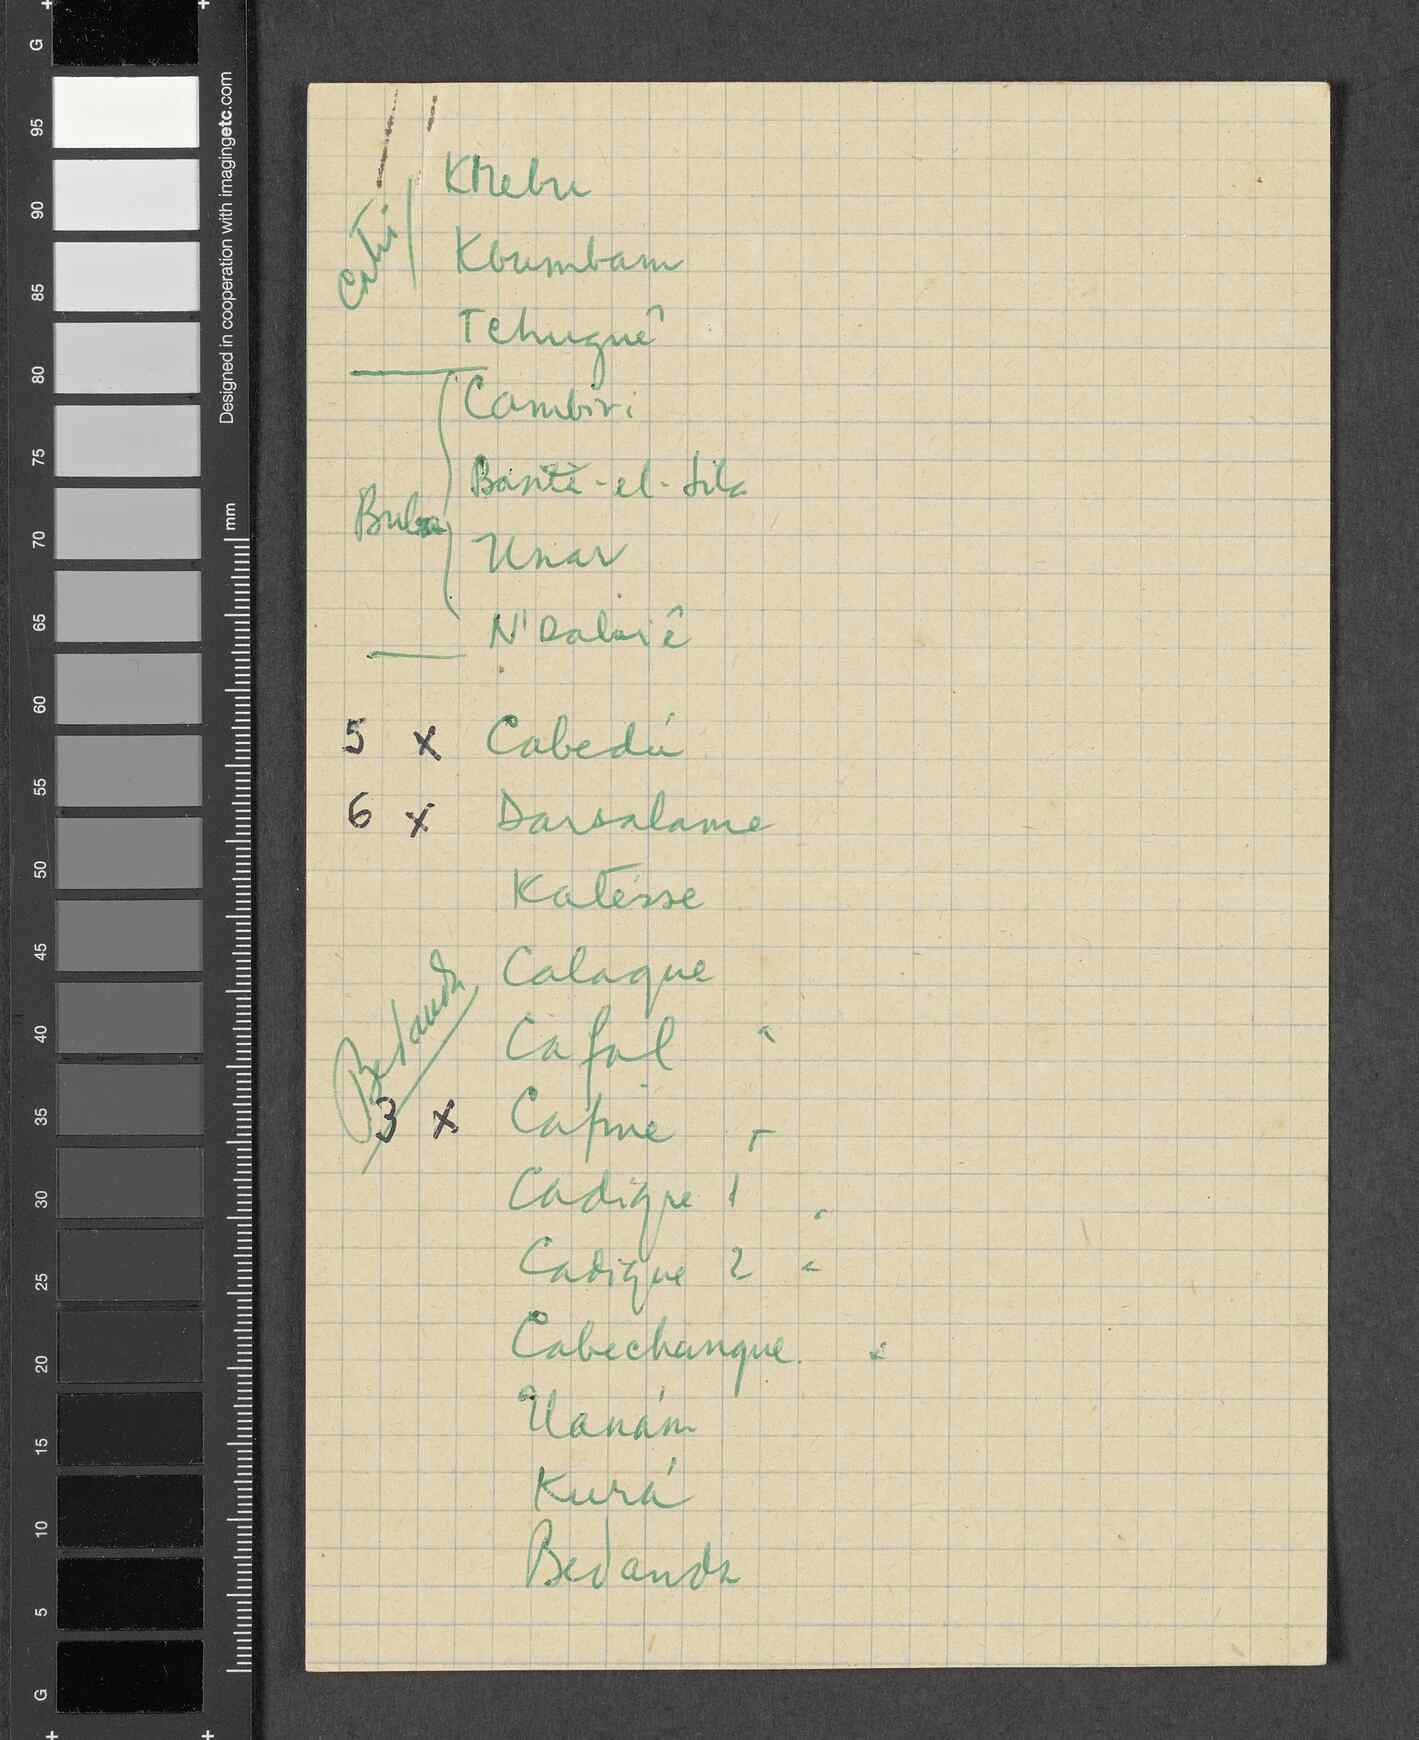 G
95
90
85
80
75
70
65
60
55
50
45
40
35
30
25
20
15
10
5
G
Designed in cooperation with imagingetc.com
mm
Catió
Buba
Bedanda
Kbumbam
Tchuguê
Cambiri
Bantè-el-Sila
Unar
5 x Cabedú
6 x Darsalame
Katésse
Calaque
Cafal "
3 x Cafine
Cadique 1
Cadique 2 "
Cabechanque. "
Uanám
Kurá
Bedanda